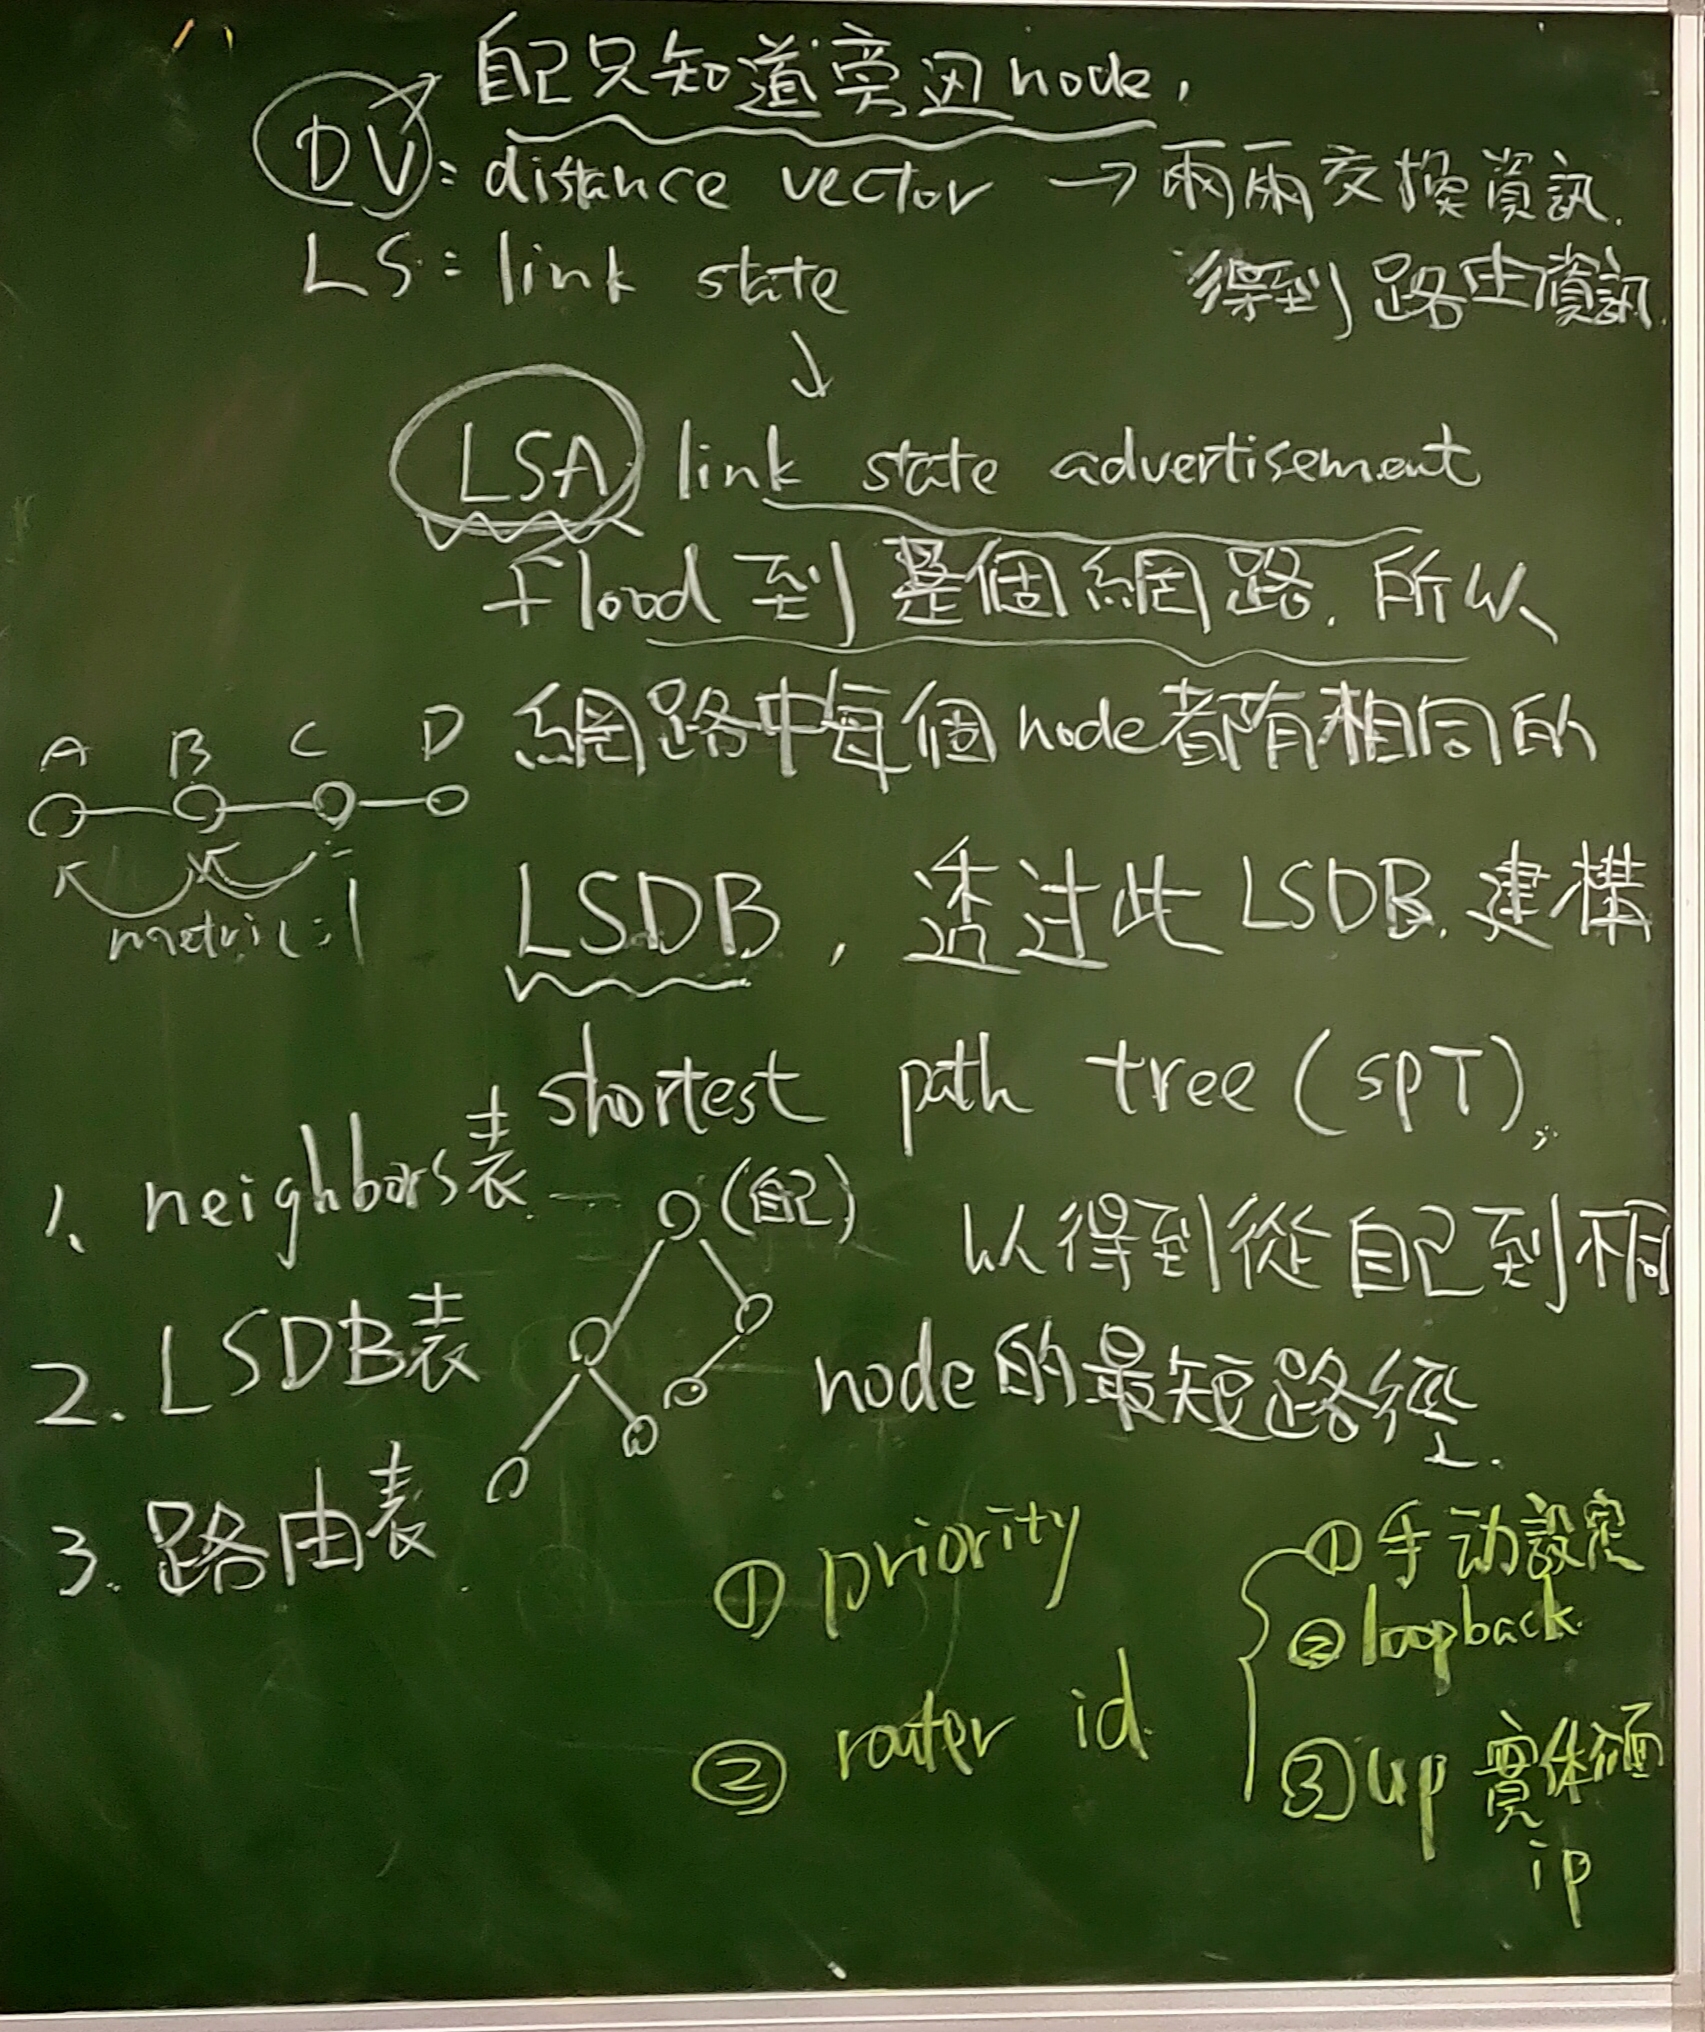 自己只知道旁边node,
DV: distance vector → 兩兩交換資訊.
得到路由資訊.
LS: link state
↓
LSA link state advertisement
flood 到整個網路. 所以
網路中每個node都有相同的
LSDB, 透过此 LSDB. 建構
shortest path tree (SPT).
以得到從自己到不同
node的最短路徑.
A B C D
metric:1
(自己)
1. neighbors表
2. LSDB表
3. 路由表
① priority
② router id.
① 手动設定
② loopback.
③ up 實体介面
ip